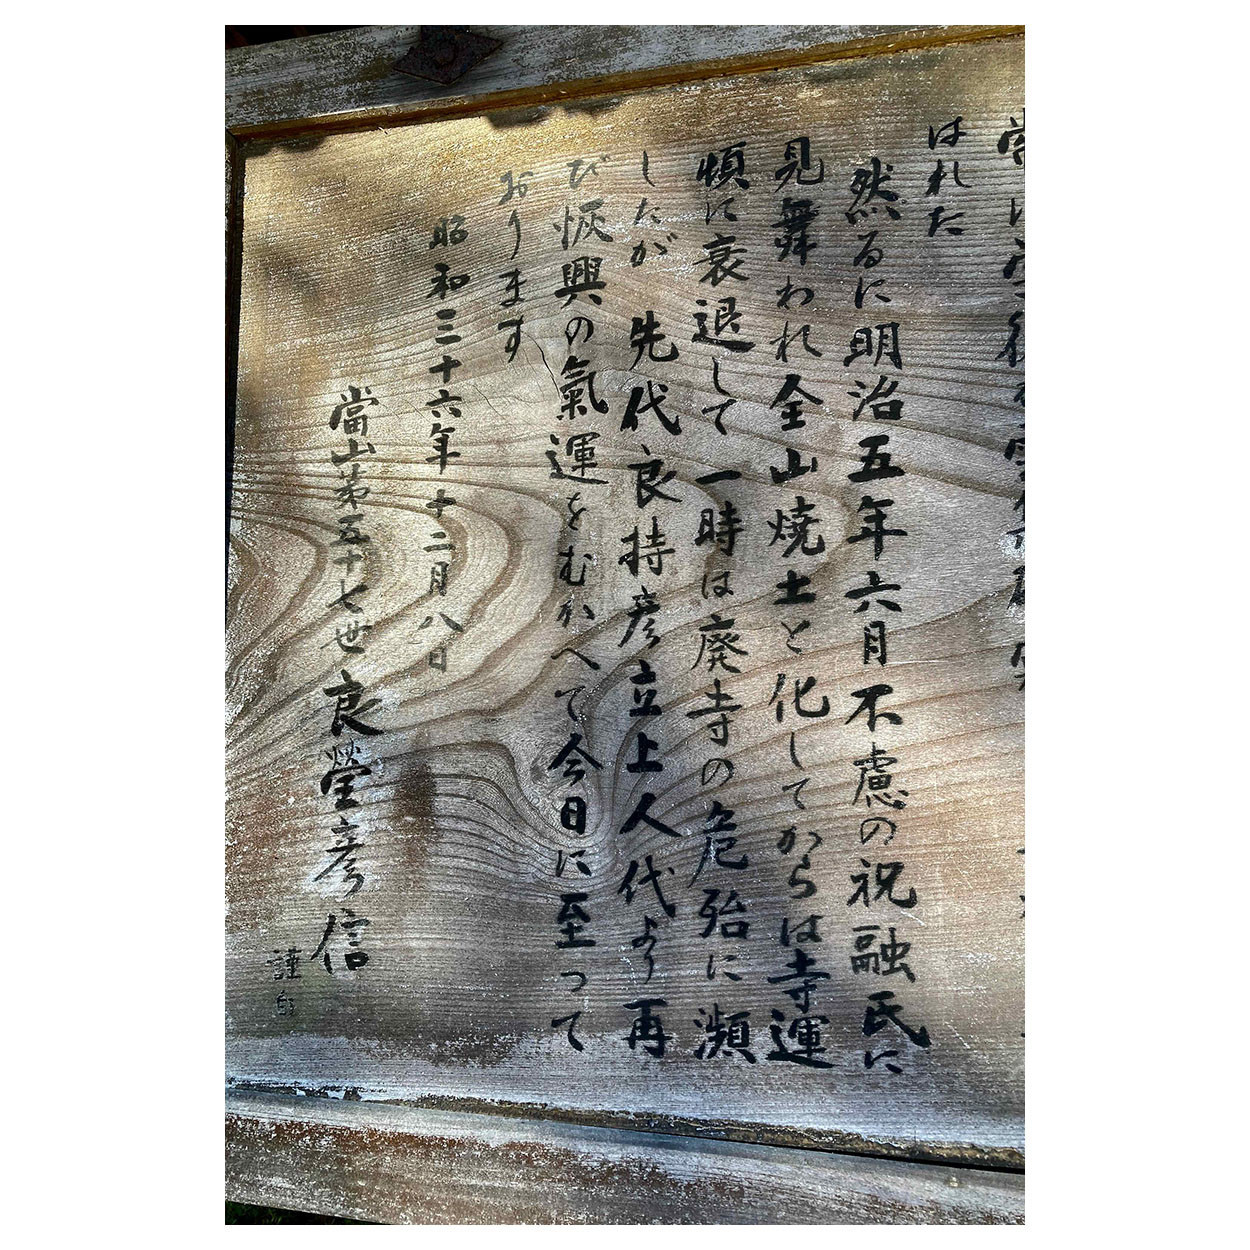 はれた
然るに明治五年六月不慮の祝融氏に
見舞われ全山焼土と化してからは寺運
頓に衰退して一時は廃寺の危殆に瀕
したが 先代良持彦立上人代より再
び恢興の氣運をむかへて今日に至って
おります
昭和三十六年十二月八日
當山第五十七世良瑩彦信
謹白